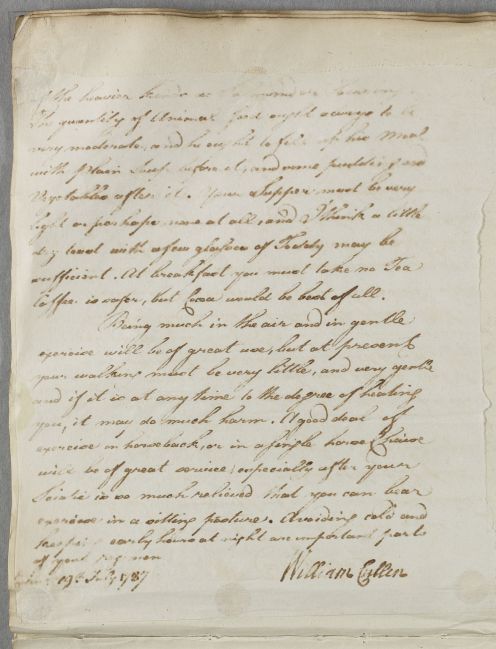 of the heavier kinds
The quantity of Animal food ought always to be
very moderate, and he ought to fill up his Meal
with plain Soup before it, and some pudding and
Vegetables after it. Your Supper must be very
light or perhaps none at all, and I think a little
dry toast with a few glasses of Toddy may be
sufficient. At breakfast you must take no Tea
Coffee is safer, but Cocoa would be best of all.
Being much in the air and in gentle
exercise will be of great use, but at present
your walking must be very little, and very gentle
and if it is at any time to the degree of heating
you, it may do much harm. A good deal of
exercise on horseback, or in a single horse Chaise
will be of great service, especially after your
Sciatic is so much relieved that you can bear
exercise in a sitting posture. Avoiding cold and
keeping early hours at night are important parts
of your regimen
19th July 1787 William Cullen